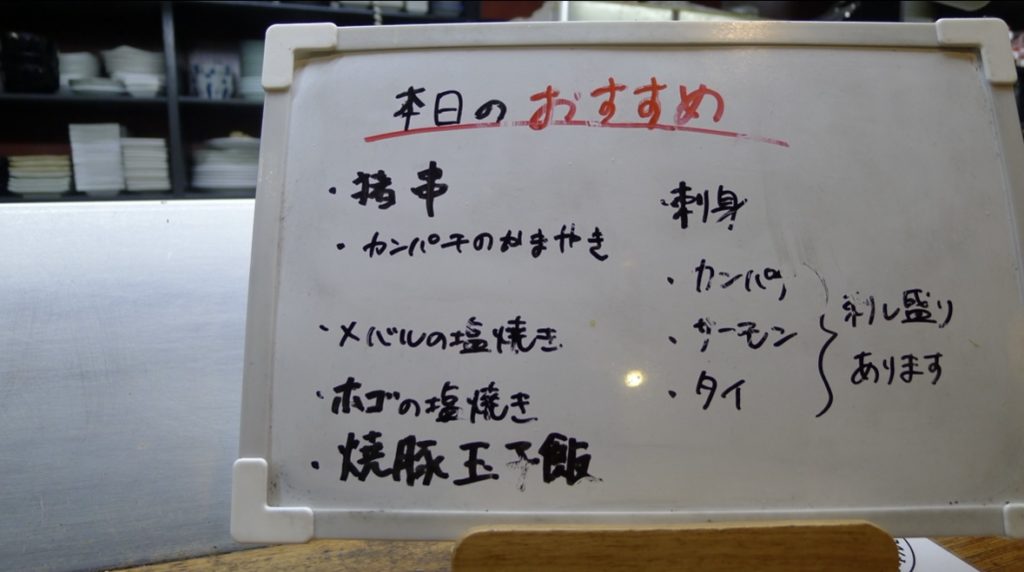 本日のおすすめ
・猪串
・カンパチのかまやき
・メバルの塩焼き
・ホゴの塩焼き
・焼豚玉子飯
・刺身
・カンパ
・サーモン
・タイ
刺し盛り
あります